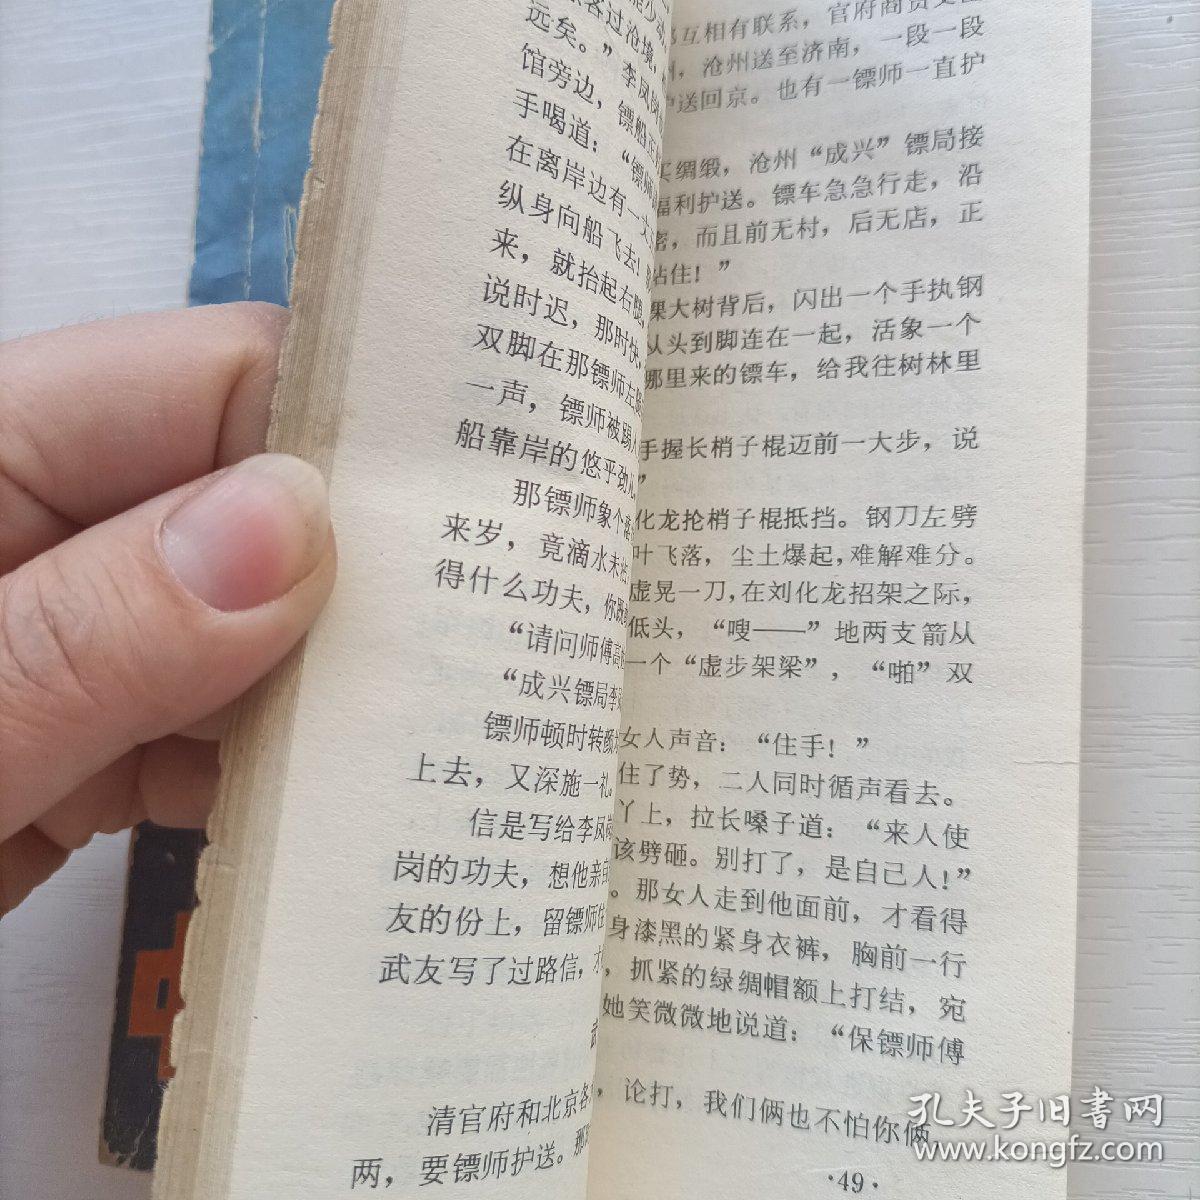 客过沧境，
远矣。”李凤岗
馆旁边，镖船正
手喝道：“镖师
在离岸边有一丈
纵身向船飞去！
来，就抬起右腿，
说时迟，那时快，
双脚在那镖师左
一声，镖师被踢
船靠岸的悠乎劲儿
那镖师象个落
来岁，竟滴水未
得什么功夫，你既
“请问师傅高
“成兴镖局李
镖师顿时转颜
上去，又深施一礼。
信是写给李凤岗
岗的功夫，想他亲
友的份上，留镖师住
武友写了过路信，才
清官府和北京各
两，要镖师护送。那
互相有联系，官府商贾
，沧州送至济南，一段一段
送回京。也有一镖师一直护
买绸缎，沧州“成兴”镖局接
福利护送。镖车急急行走，沿
密，而且前无村，后无店，正
站住！”
棵大树背后，闪出一个手执钢
从头到脚连在一起，活象一个
那里来的镖车，给我往树林里
手握长梢子棍迈前一大步，说
”
化龙抡梢子棍抵挡。钢刀左劈
叶飞落，尘土爆起，难解难分。
虚晃一刀，在刘化龙招架之际，
低头，“嗖——”地两支箭从
一个“虚步架梁”，“啪”双
女人声音：“住手！”
住了势，二人同时循声看去。
丫上，拉长嗓子道：“来人使
该劈砸。别打了，是自己人！”
。那女人走到他面前，才看得
身漆黑的紧身衣裤，胸前一行
，抓紧的绿绸帽额上打结，宛
她笑微微地说道：“保镖师傅
，论打，我们俩也不怕你俩
·49·
孔夫子旧书网
www.kongfz.com